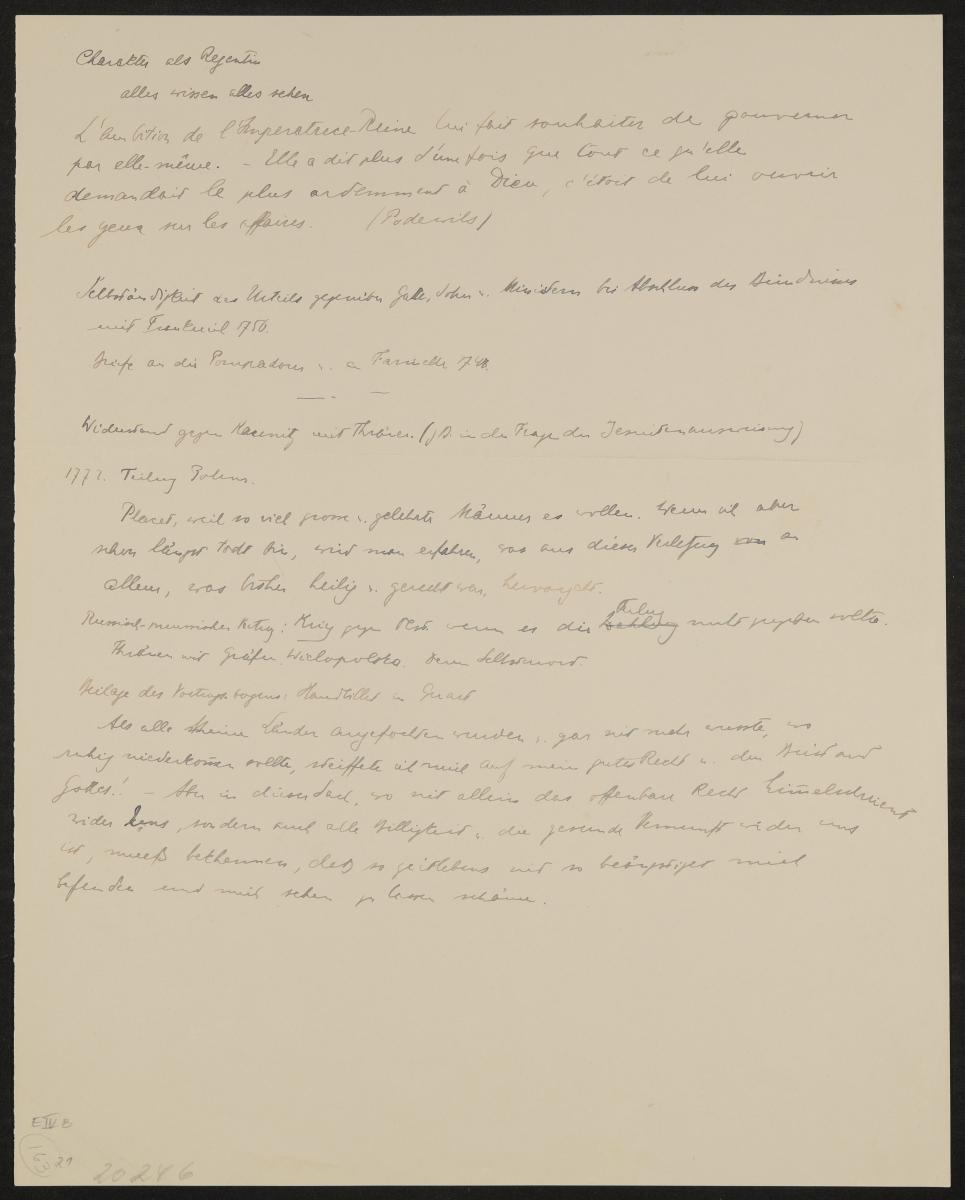 Charakter als Regentin
alles wissen alles sehen
L'ambition de l'Imperatrice-Reine lui fait souhaiter de gouverner
par elle-même. – Elle a dit plus d'une fois que tout ce qu'elle
demandait le plus ardemment à Dieu, c'étoit de lui ouvrir
les yeux sur les affaires. (Podewils)
Selbständigkeit des Urteils gegenüber Gatte, Sohn u. Ministern bei Abschluss des Bündnisses
mit Frankreich 1756.
Briefe an die Pompadour u. a Farinelli
Widerstand gegen Kaunitz mit Thränen. (z B. in der Frage der Jesuitenausweisung)
1772. Teilung Polens.
Placet, weil so viel grosse u. gelehrte Männer es wollen. Wenn ich aber
schon längst todt bin, wird man erfahren, was aus dieser Verletzung von an
allem, was bisher heilig u. gerecht war, hervorgeht.
Russisch-preussischer Vertrag: Krieg gegen Öst. wenn es die Teilung nicht zugeben sollte.
Thränen mit Gräfin Wielopolska. Deren Selbstmord.
Beilage des Vortragsbogens: Handbillet an
Als alle meine Länder angefochten wurden u. gar nit mehr wusste, wo
ruhig niederkommen sollte, steiffete ich mich auf mein gutes Recht u. den Beistand
Gottes! – Aber in dieser Sach, wo nit allein das offenbare Recht himmelschreient
wider uns, sondern auch alle Billigkeit u. die gesunde Vernunft wider uns
ist, mueß bekhennen, daß so zeitlebens nit so beängstiget mich
befunden und mich sehen zu lassen schäme.
E IV B
163
21
20246